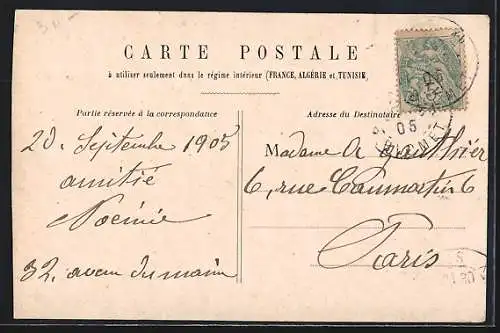 CARTE POSTALE
à utiliser seulement dans le régime intérieur (FRANCE, ALGÉRIE et TUNISIE)
Partie réservée à la correspondance
20, Septembre 1905
amitié
Noémie
32, avenu du maine
Adresse du Destinataire
Madame A Gauthier
6, rue Caumartin 6
Paris
05